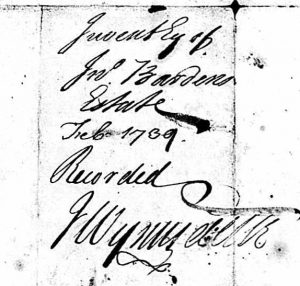 Inventry of
Jno. Bardens
Estate
Feb. 1739.
Recorded
J Wynns